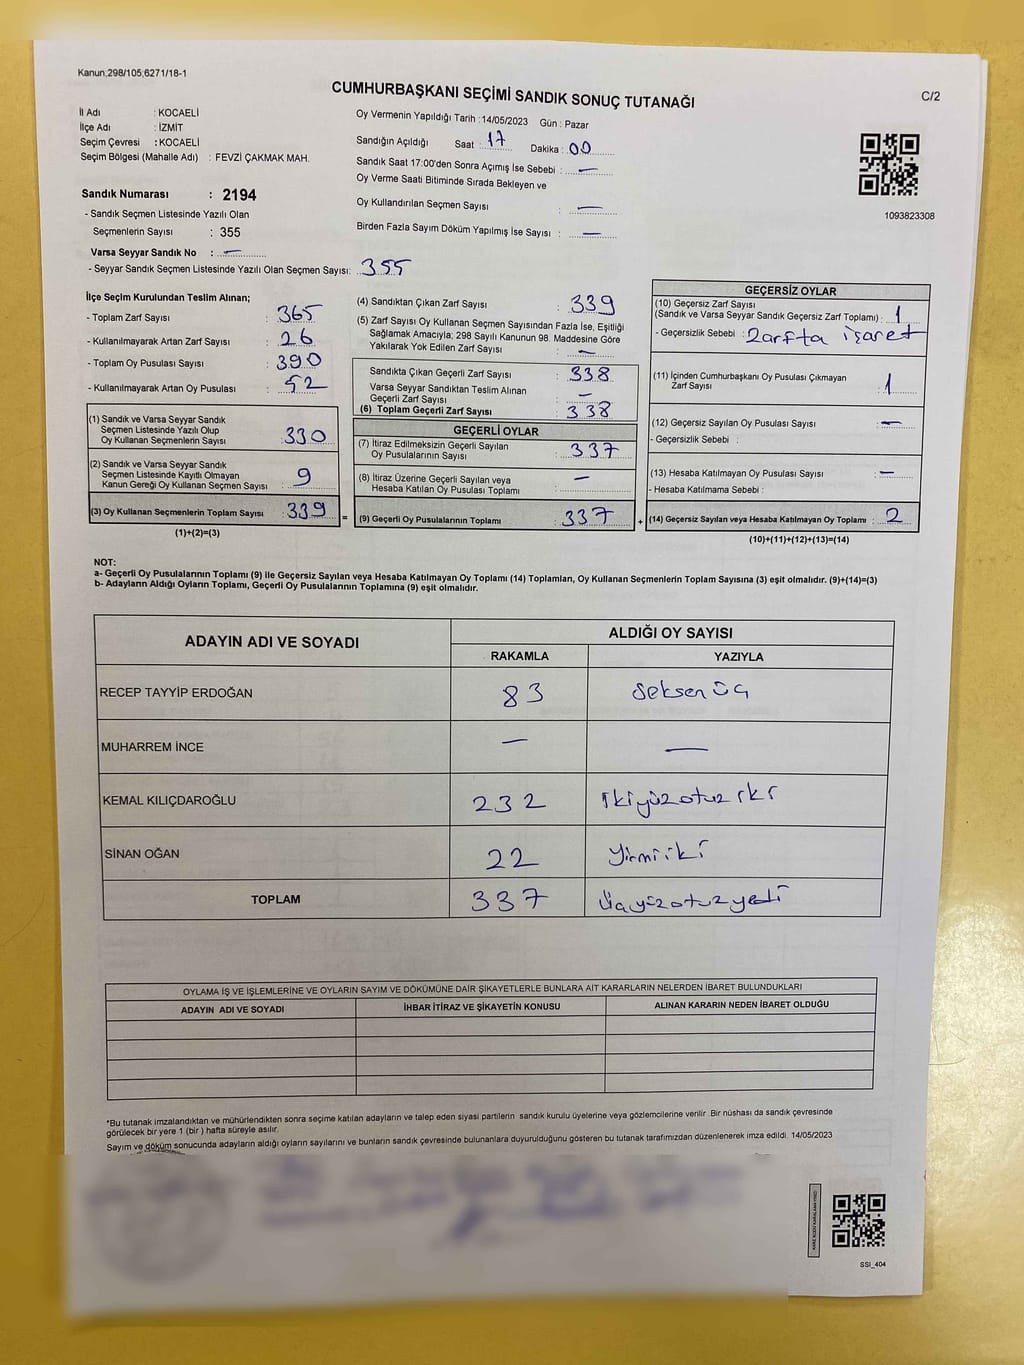 Kanun;298/105;6271/18-1
CUMHURBAŞKANI SEÇİMİ SANDIK SONUÇ TUTANAĞI
C/2
İl Adı : KOCAELİ
İlçe Adı : İZMİT
Seçim Çevresi : KOCAELİ
Seçim Bölgesi (Mahalle Adı) : FEVZİ ÇAKMAK MAH.
Sandık Numarası : 2194
- Sandık Seçmen Listesinde Yazılı Olan
Seçmenlerin Sayısı : 355
Varsa Seyyar Sandık No : —
- Seyyar Sandık Seçmen Listesinde Yazılı Olan Seçmen Sayısı: 355
Oy Vermenin Yapıldığı Tarih : 14/05/2023 Gün : Pazar
Sandığın Açıldığı Saat : 17 Dakika : 00
Sandık Saat 17:00'den Sonra Açımış İse Sebebi : —
Oy Verme Saati Bitiminde Sırada Bekleyen ve
Oy Kullandırılan Seçmen Sayısı : —
Birden Fazla Sayım Döküm Yapılmış İse Sayısı : —
1093823308
İlçe Seçim Kurulundan Teslim Alınan;
- Toplam Zarf Sayısı : 365
- Kullanılmayarak Artan Zarf Sayısı : 26
- Toplam Oy Pusulası Sayısı : 390
- Kullanılmayarak Artan Oy Pusulası : 52
(1) Sandık ve Varsa Seyyar Sandık
Seçmen Listesinde Yazılı Olup
Oy Kullanan Seçmenlerin Sayısı : 330
(2) Sandık ve Varsa Seyyar Sandık
Seçmen Listesinde Kayıtlı Olmayan
Kanun Gereği Oy Kullanan Seçmen Sayısı : 9
(3) Oy Kullanan Seçmenlerin Toplam Sayısı : 339 =
(1)+(2)=(3)
(4) Sandıktan Çıkan Zarf Sayısı : 339
(5) Zarf Sayısı Oy Kullanan Seçmen Sayısından Fazla İse, Eşitliği
Sağlamak Amacıyla, 298 Sayılı Kanunun 98. Maddesine Göre
Yakılarak Yok Edilen Zarf Sayısı : —
Sandıkta Çıkan Geçerli Zarf Sayısı : 338
Varsa Seyyar Sandıktan Teslim Alınan
Geçerli Zarf Sayısı : —
(6) Toplam Geçerli Zarf Sayısı : 338
GEÇERLİ OYLAR
(7) İtiraz Edilmeksizin Geçerli Sayılan
Oy Pusulalarının Sayısı : 337
(8) İtiraz Üzerine Geçerli Sayılan veya
Hesaba Katılan Oy Pusulası Toplamı : —
(9) Geçerli Oy Pusulalarının Toplamı : 337 +
GEÇERSİZ OYLAR
(10) Geçersiz Zarf Sayısı
(Sandık ve Varsa Seyyar Sandık Geçersiz Zarf Toplamı) : 1
- Geçersizlik Sebebi : Zarfta işaret
(11) İçinden Cumhurbaşkanı Oy Pusulası Çıkmayan
Zarf Sayısı : 1
(12) Geçersiz Sayılan Oy Pusulası Sayısı : —
- Geçersizlik Sebebi :
(13) Hesaba Katılmayan Oy Pusulası Sayısı : —
- Hesaba Katılmama Sebebi :
(14) Geçersiz Sayılan veya Hesaba Katılmayan Oy Toplamı : 2
(10)+(11)+(12)+(13)=(14)
NOT:
a- Geçerli Oy Pusulalarının Toplamı (9) ile Geçersiz Sayılan veya Hesaba Katılmayan Oy Toplamı (14) Toplamları, Oy Kullanan Seçmenlerin Toplam Sayısına (3) eşit olmalıdır. (9)+(14)=(3)
b- Adayların Aldığı Oyların Toplamı, Geçerli Oy Pusulalarının Toplamına (9) eşit olmalıdır.
ADAYIN ADI VE SOYADI
ALDIĞI OY SAYISI
RAKAMLA YAZIYLA
RECEP TAYYİP ERDOĞAN 83 Seksenüç
MUHARREM İNCE — —
KEMAL KILIÇDAROĞLU 232 İkiyüzotuziki
SİNAN OĞAN 22 Yirmiiki
TOPLAM 337 Üçyüzotuzyedi
OYLAMA İŞ VE İŞLEMLERİNE VE OYLARIN SAYIM VE DÖKÜMÜNE DAİR ŞİKAYETLERLE BUNLARA AİT KARARLARIN NELERDEN İBARET BULUNDUKLARI
ADAYIN ADI VE SOYADI İHBAR İTİRAZ VE ŞİKAYETİN KONUSU ALINAN KARARIN NEDEN İBARET OLDUĞU
*Bu tutanak imzalandıktan ve mühürlendikten sonra seçime katılan adayların ve talep eden siyasi partilerin sandık kurulu üyelerine veya gözlemcilerine verilir. Bir nüshası da sandık çevresinde
görülecek bir yere 1 (bir ) hafta süreyle asılır.
Sayım ve döküm sonucunda adayların aldığı oyların sayılarını ve bunların sandık çevresinde bulunanlara duyurulduğunu gösteren bu tutanak tarafımızdan düzenlenerek imza edildi. 14/05/2023
SSI_404